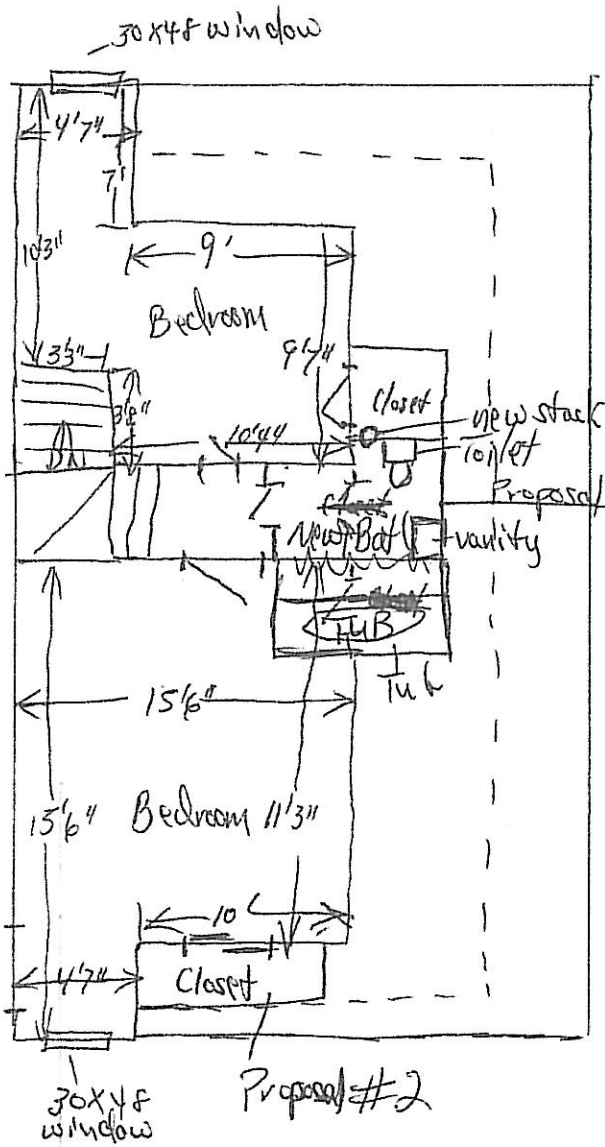 30X48 window
4'7"
7'
10'3"
9'
Bedroom
9'7"
3'3"
3'8"
10'4"
Closet
new stack
Toilet
Proposal
New Bat
vanity
TUB
Tub
15'6"
15'6"
Bedroom
11'3"
10'
4'7"
Closet
Proposal #2
30X48
window